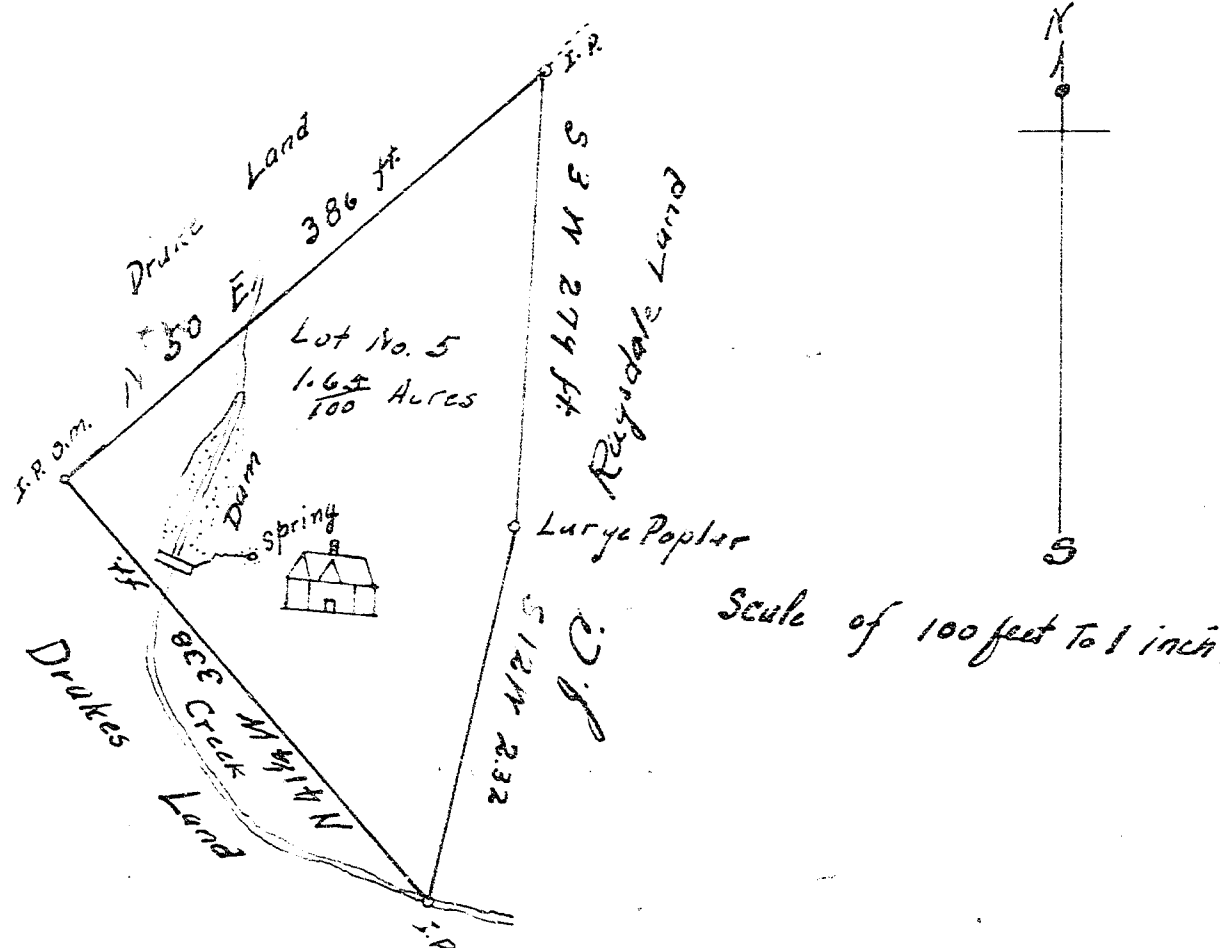 N
I.P.
Drake Land
N 50 E. 386 ft.
S 3 W 274 ft.
J. C. Ragsdale Land
Lot No. 5
1.65/100 Acres
I.P. O.M.
Dam
Spring
Large Popler
S
S 12 W 232
Scale of 100 feet To 1 inch
N 41¼ W 338 ft.
Creek
Drakes Land
I.P.